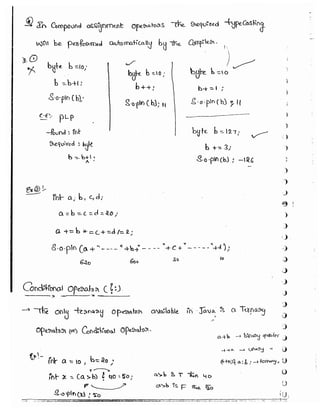 In Compound assignment operators the required typecasting
will be performed automatically by the Compiler.
byte b=10;
b=b+1;
S.o.pln(b);
C.E: PLP
found: int
required: byte
b=b+1;
^
byte b=10;
b++;
S.o.pln(b); 11
byte b=10
b+=1;
S.o.pln(b); 11
byte b=127;
b+=3;
S.o.pln(b); -126
int a, b, c, d;
a=b=c=d=20;
a+=b*=c+=d/=2;
S.o.pln(a+"----"+b+"----"+c+"-----"+d);
620 600 30 10
Conditional Operator (?:)
→ The only ternary operator available in Java is a Ternary
Operator (or) Conditional Operator.
a+b → binary operator
++a → unary
Ex:- int a=10, b=20;
int x=(a>b)?40:50;
S.o.pln(x); 50
a>b is T then 40
a>b is F then 50